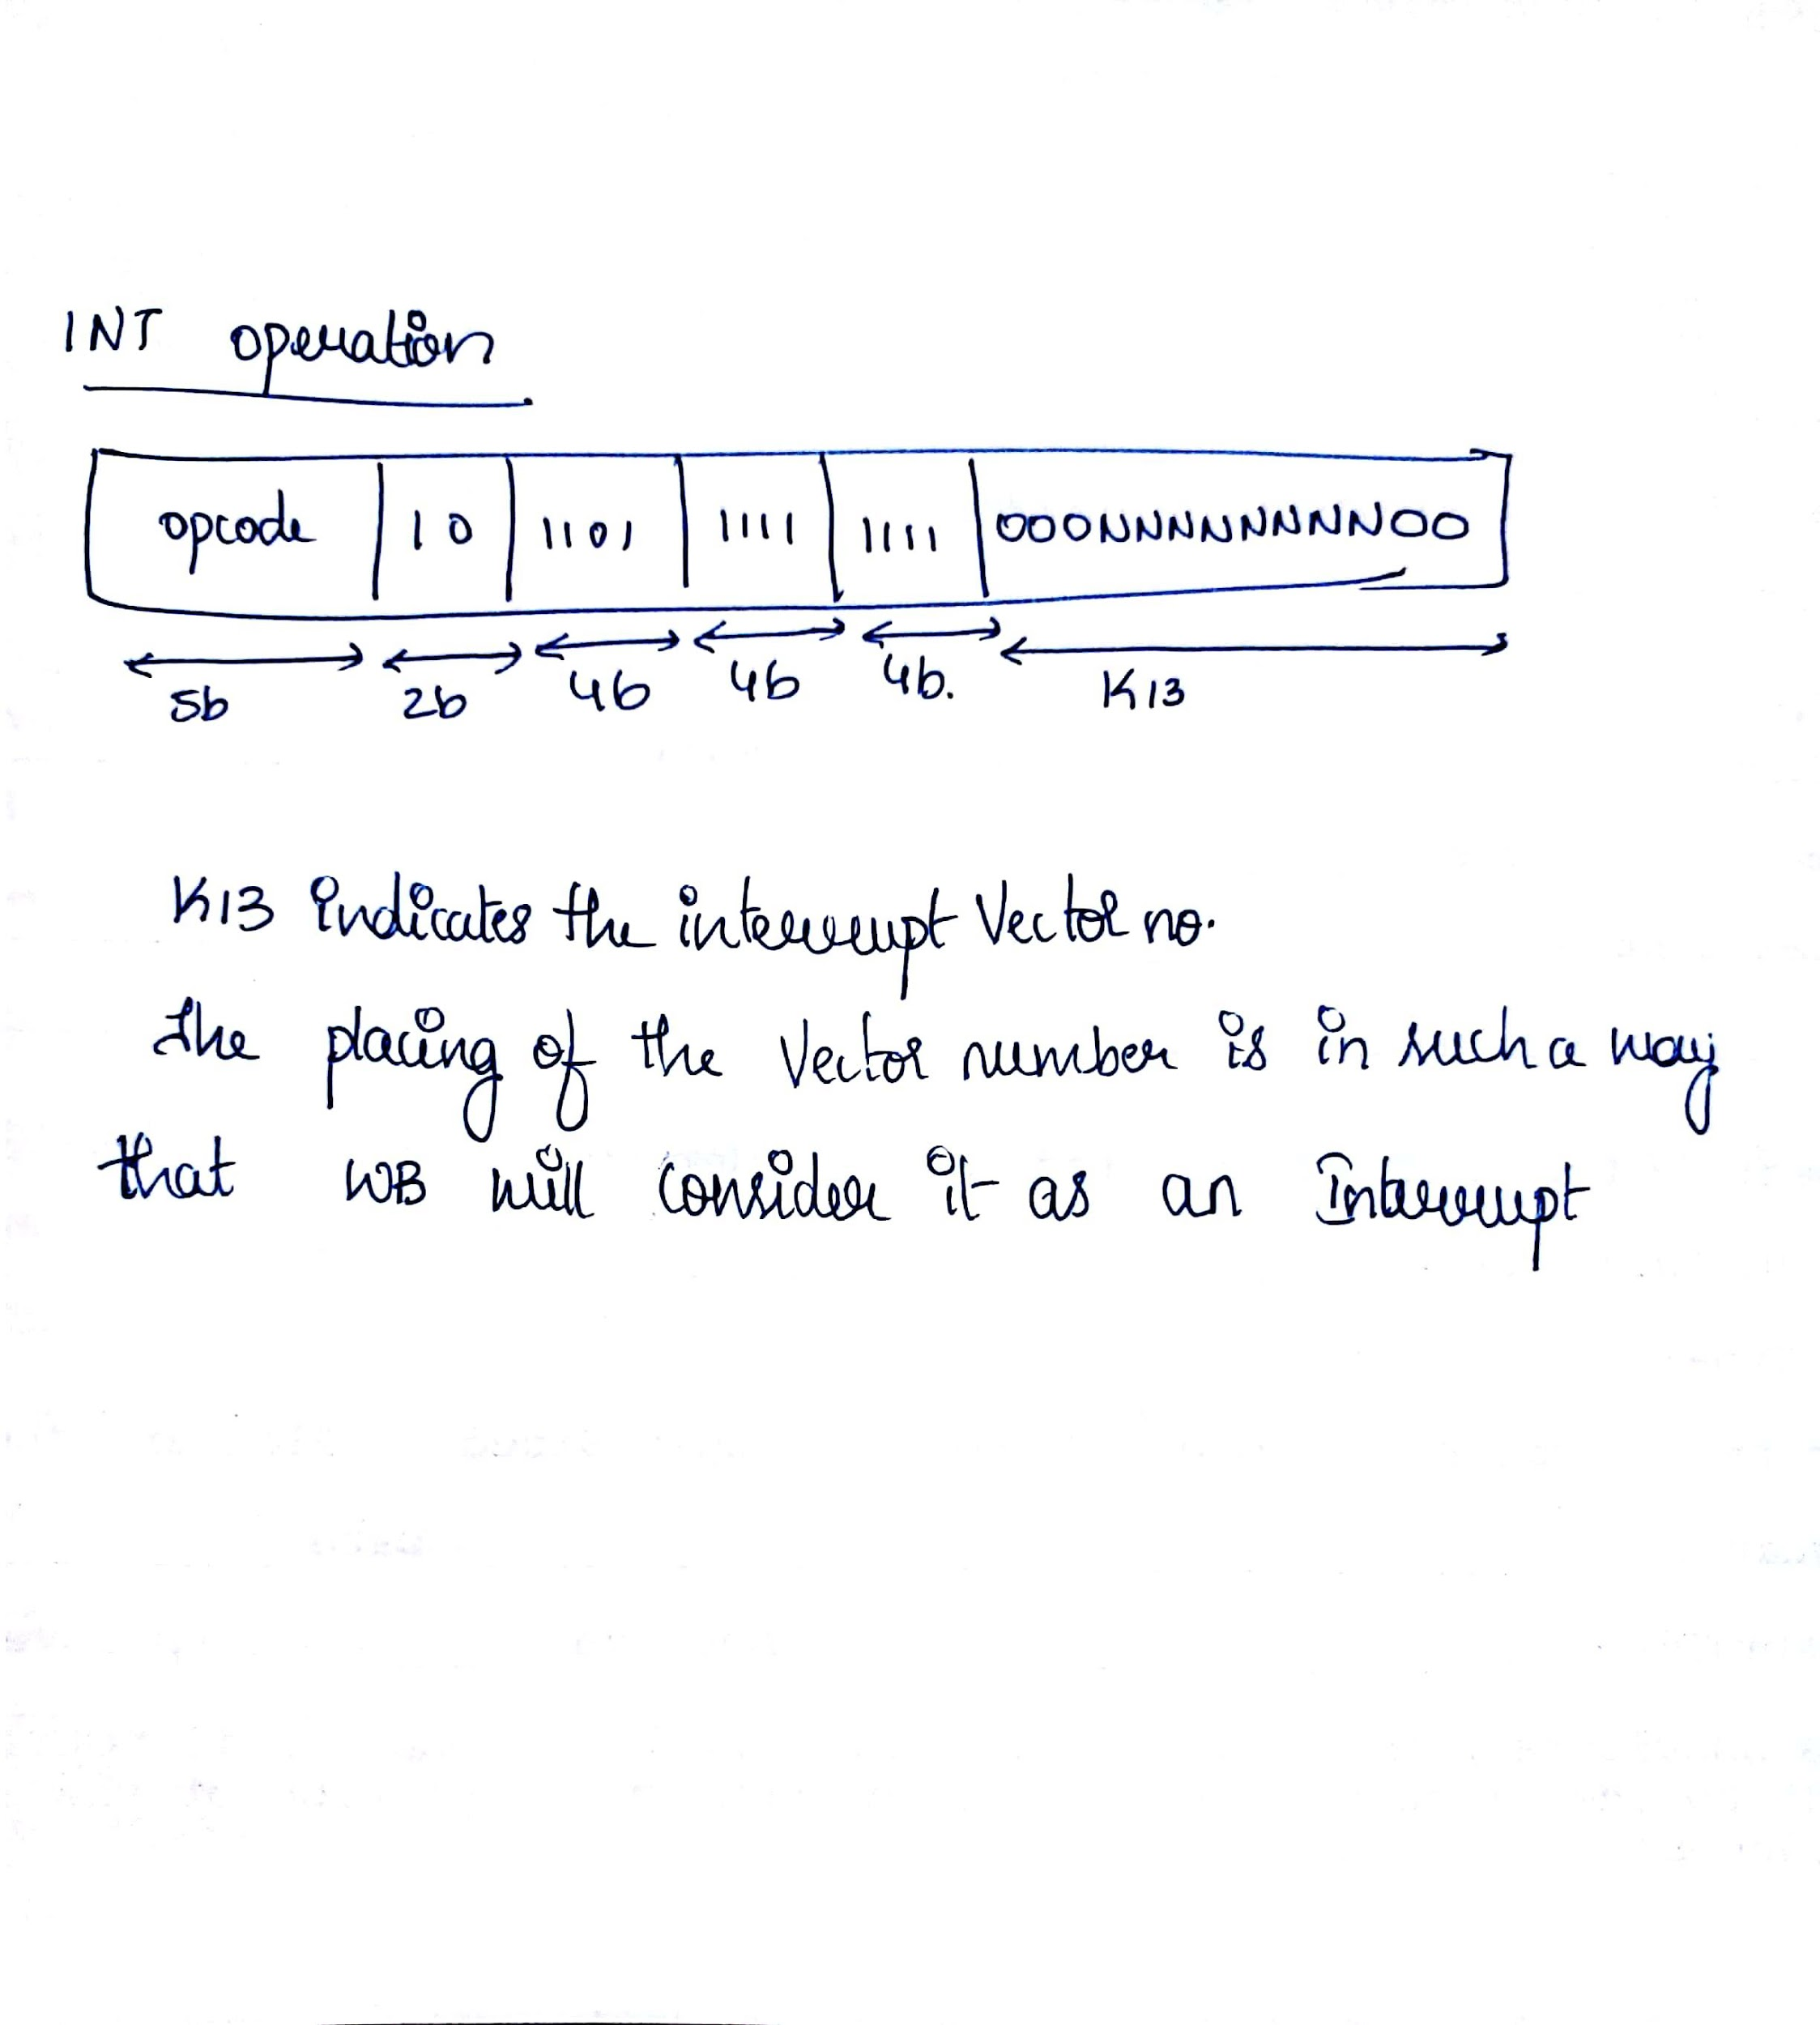 INT operation
opcode 10 1101 1111 1111 000NNNNNNNNN00
5b 2b 4b 4b 4b. K13
K13 indicates the interrupt Vector no.
The placing of the Vector number is in such a way
that WB will consider it as an Interrupt